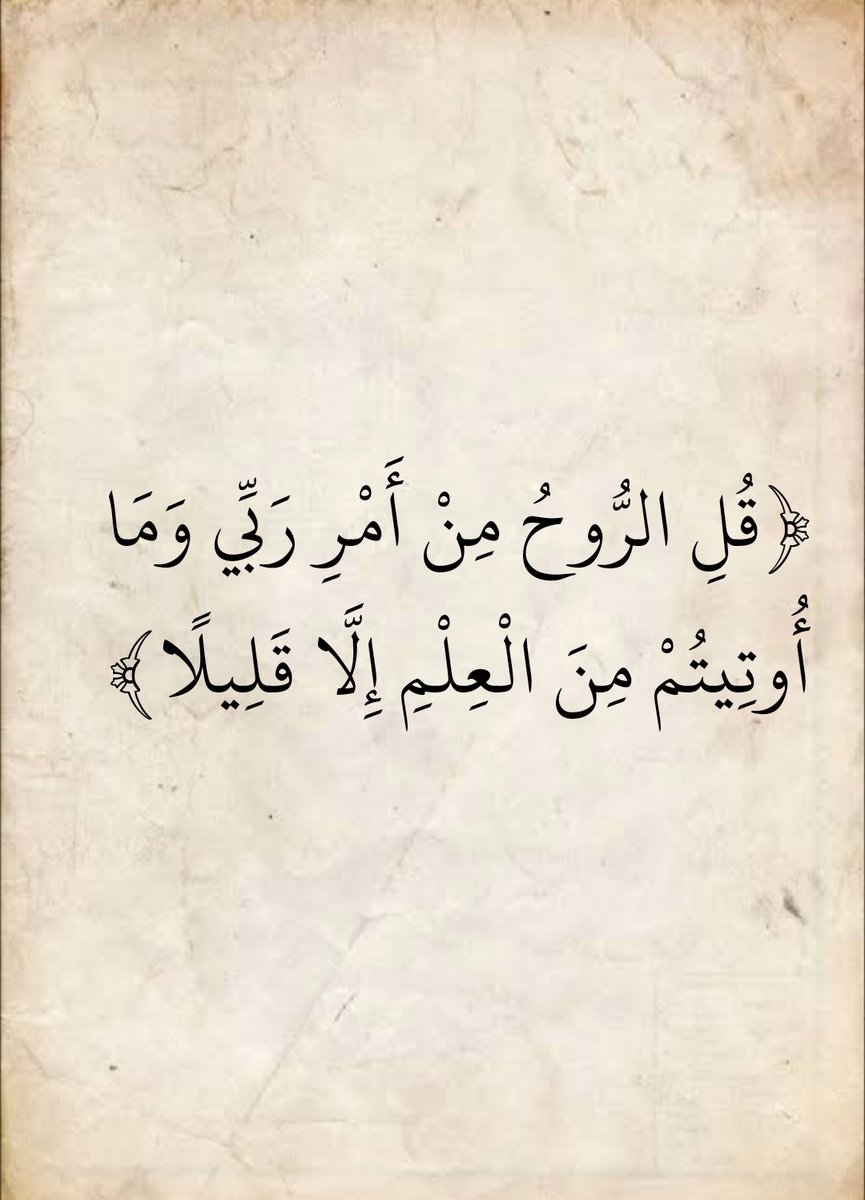 ﴿قُلِ الرُّوحُ مِنْ أَمْرِ رَبِّي وَمَا
أُوتِيتُمْ مِنَ الْعِلْمِ إِلَّا قَلِيلًا﴾